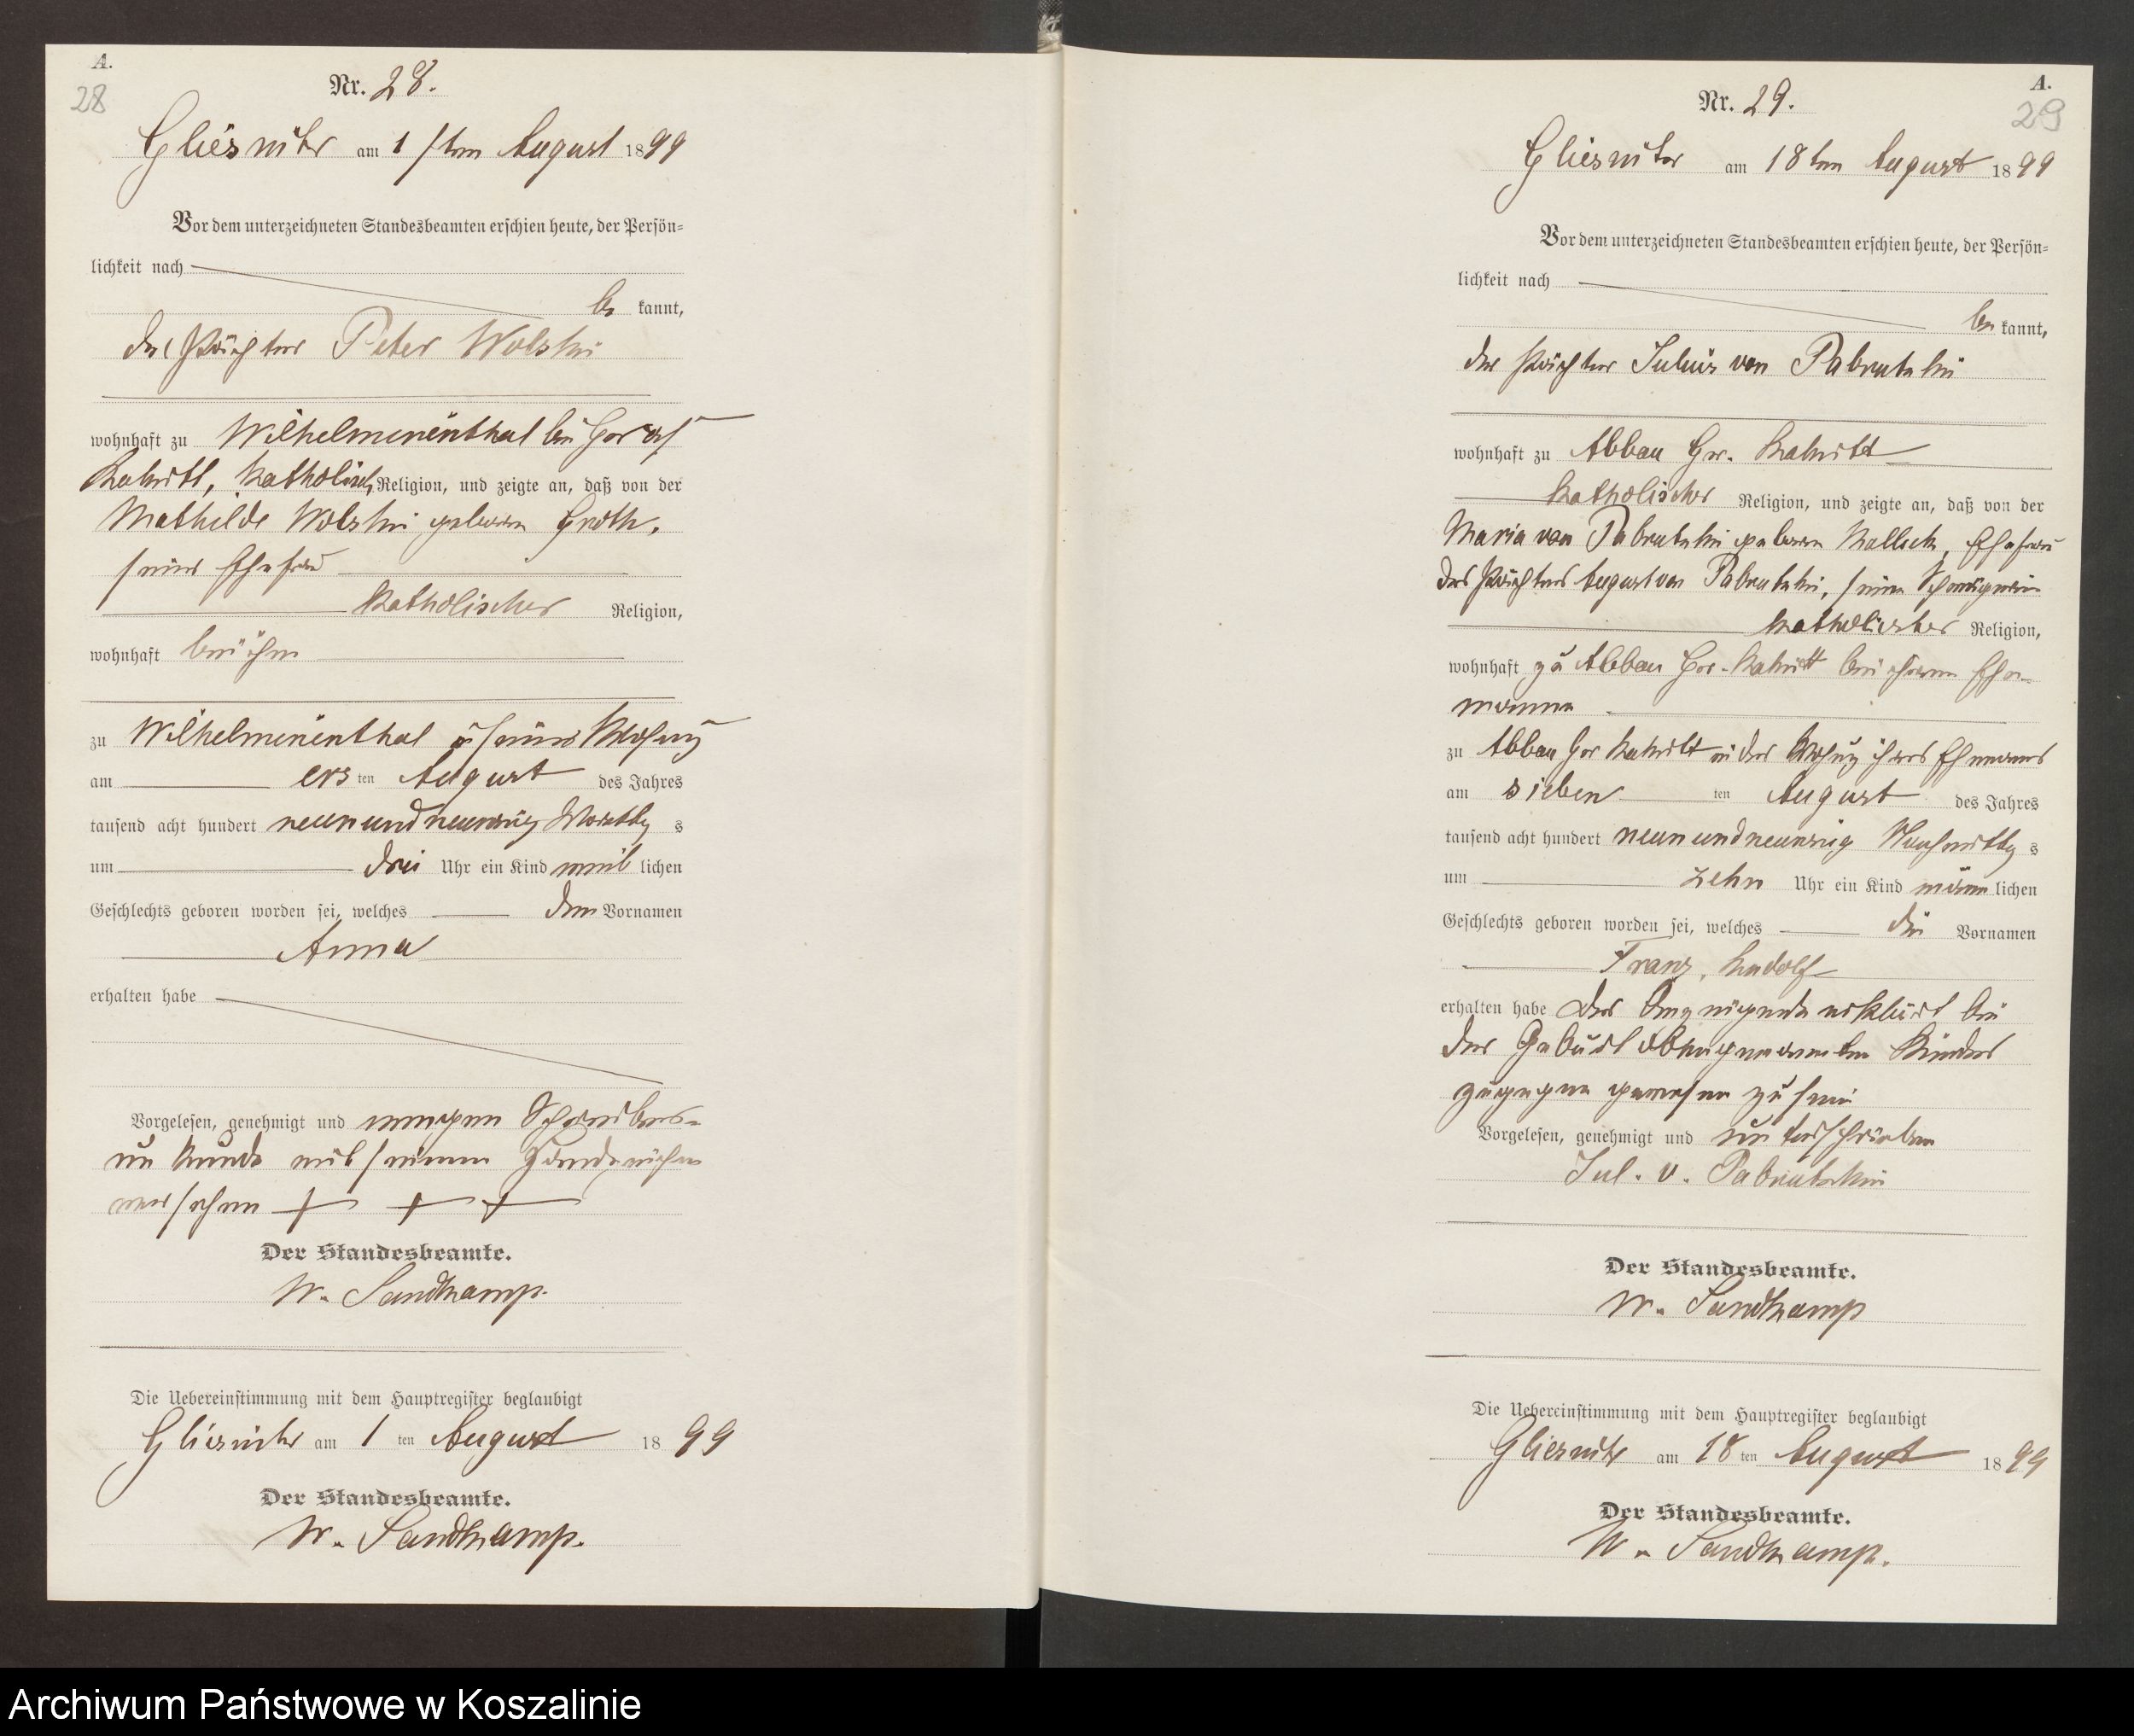 A.
28
Nr. 28.
Gliesnitz am 1 ſten August 1899
Vor dem unterzeichneten Standesbeamten erſchien heute, der Perſön=
lichkeit nach
be kannt,
der Pächter Peter Wolski
wohnhaft zu Wilhelmenenthal bei
katholisch Religion, und zeigte an, daß von der
Mathilde Wolski geborene Groth,
seiner Ehefrau
katholischer Religion,
wohnhaft bei ihm
zu Wilhelmenenthal in seiner Wohnung
am ers ten August des Jahres
tauſend acht hundert neunundneunzig Vormittag s
um drei Uhr ein Kind weib lichen
Geſchlechts geboren worden ſei, welches den Vornamen
Anna
erhalten habe
Vorgeleſen, genehmigt und wegen Schreibens-
unkunde mit seinem Handzeichen
versehen + + +
Der Standesbeamte.
W. Sandkamp.
Die Uebereinſtimmung mit dem Hauptregiſter beglaubigt
Gliesnitz am 1 ten August 18 99
Der Standesbeamte.
W. Sandkamp.
A.
29
Nr. 29.
Gliesnitz am 18ten August 1899
Vor dem unterzeichneten Standesbeamten erſchien heute, der Perſön=
lichkeit nach
be kannt,
der Pächter Julius von Pabrutzki
wohnhaft zu Abbau Gr.
katholischer Religion, und zeigte an, daß von der
Maria von Pabrutzki geborene Ehefrau
des Pächters August von Pabrutzki, seiner Schwägerin
katholischer Religion,
wohnhaft zu Abbau bei ihrem Ehe-
manne
zu Abbau in der Wohnung ihres Ehemanns
am sieben ten August des Jahres
tauſend acht hundert neunundneunzig Nachmittag s
um zehn Uhr ein Kind männ lichen
Geſchlechts geboren worden ſei, welches die Vornamen
Franz, Rudolf
erhalten habe Der Anzeigende erklärt bei
der Geburt obengenannten Kindes
zugegen gewesen zu sein
Vorgeleſen, genehmigt und unterschrieben
Jul. v. Pabrutzki
Der Standesbeamte.
W. Sandkamp
Die Uebereinſtimmung mit dem Hauptregiſter beglaubigt
Gliesnitz am 18 ten August 18 99
Der Standesbeamte.
W. Sandkamp.
Archiwum Państwowe w Koszalinie